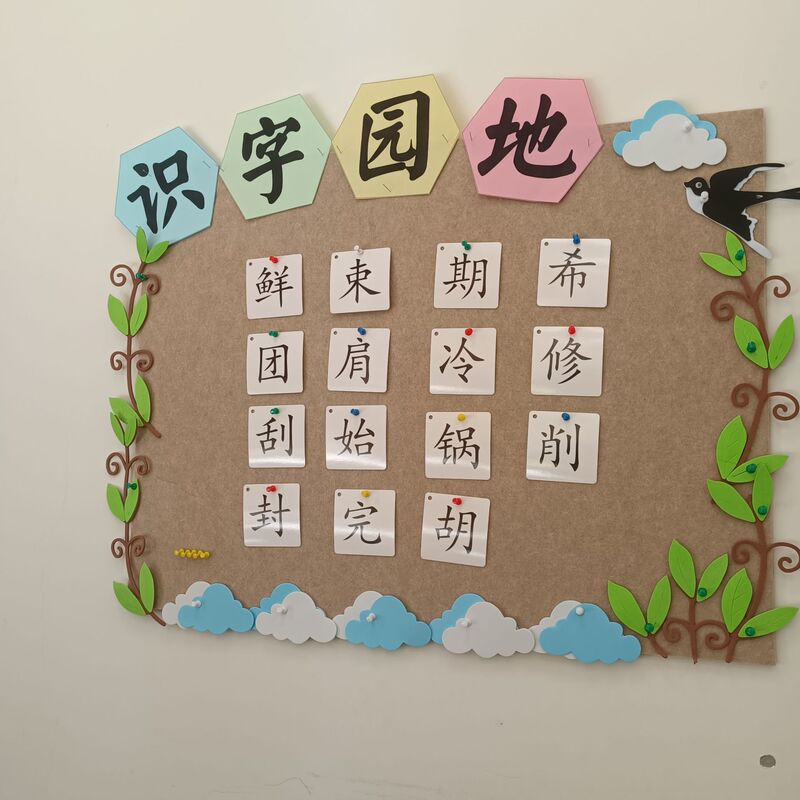 识字园地
鲜 束 期 希
团 肩 冷 修
刮 始 锅 削
封 完 胡